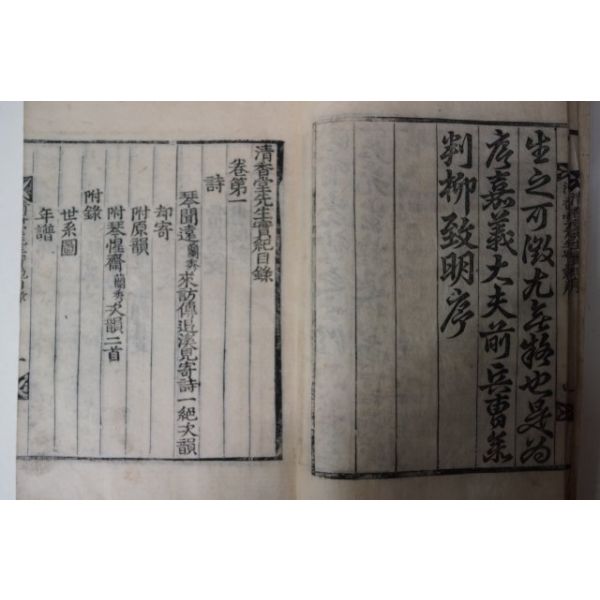 生之可徵尤無疑也是爲
序嘉義大夫前兵曹參
判柳致明序
清香堂先生實紀目錄
卷第一
詩
琴聞遠蘭秀來訪傳退溪見寄詩一絕次韻
却寄
附原韻
附琴惺齋蘭秀次韻二首
附錄
世系圖
年譜